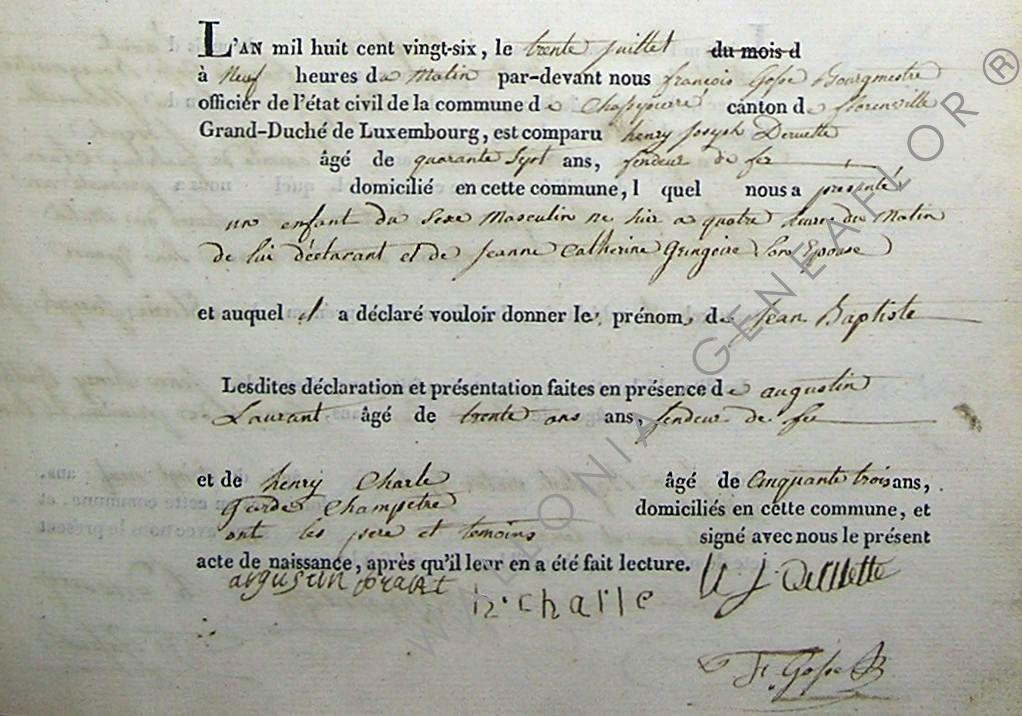 L'AN mil huit cent vingt-six, le trente juillet du mois d
à neuf heures du Matin par-devant nous françois Gosse Bourgmestre
officier de l'état civil de la commune de Chassepierre canton de florenville
Grand-Duché de Luxembourg, est comparu henry joseph Deruette
âgé de quarante Sept ans, fendeur de fer
domicilié en cette commune, l quel nous a présenté
un enfant du Sexe Masculin né hier a quatre heures du Matin
de lui déclarant et de Jeanne Catherine Gringoire Son Epouse
et auquel il a déclaré vouloir donner les prénoms de Jean Baptiste
Lesdites déclaration et présentation faites en présence de augustin
Laurant âgé de trente ans ans, fendeur de fer
et de henry Charle âgé de Cinquante trois ans,
Garde Champetre domiciliés en cette commune, et
ont les pere et temoins signé avec nous le présent
acte de naissance, après qu'il leur en a été fait lecture.
h. charle
F. Gosse B
GENEAFLOR ®